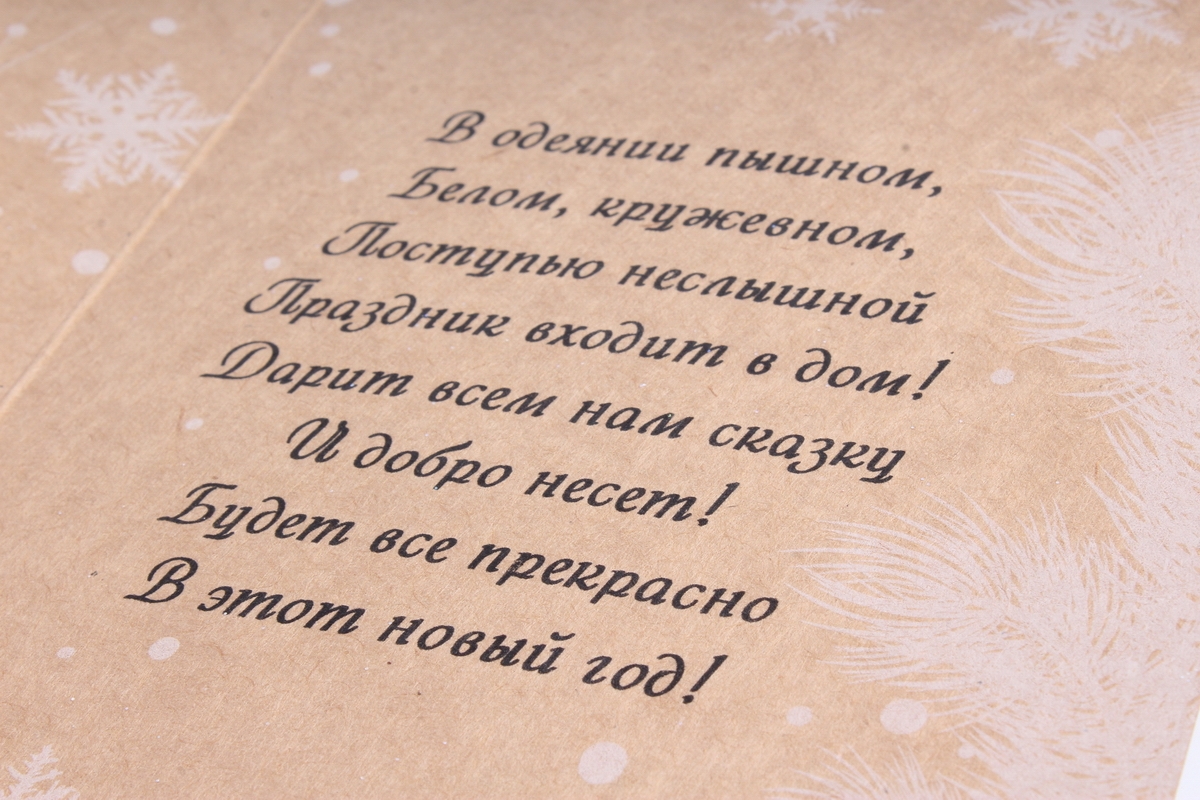 В одеянии пышном,
Белом, кружевном,
Поступью неслышной
Праздник входит в дом!
Дарит всем нам сказку
И добро несет!
Будет все прекрасно
В этот новый год!